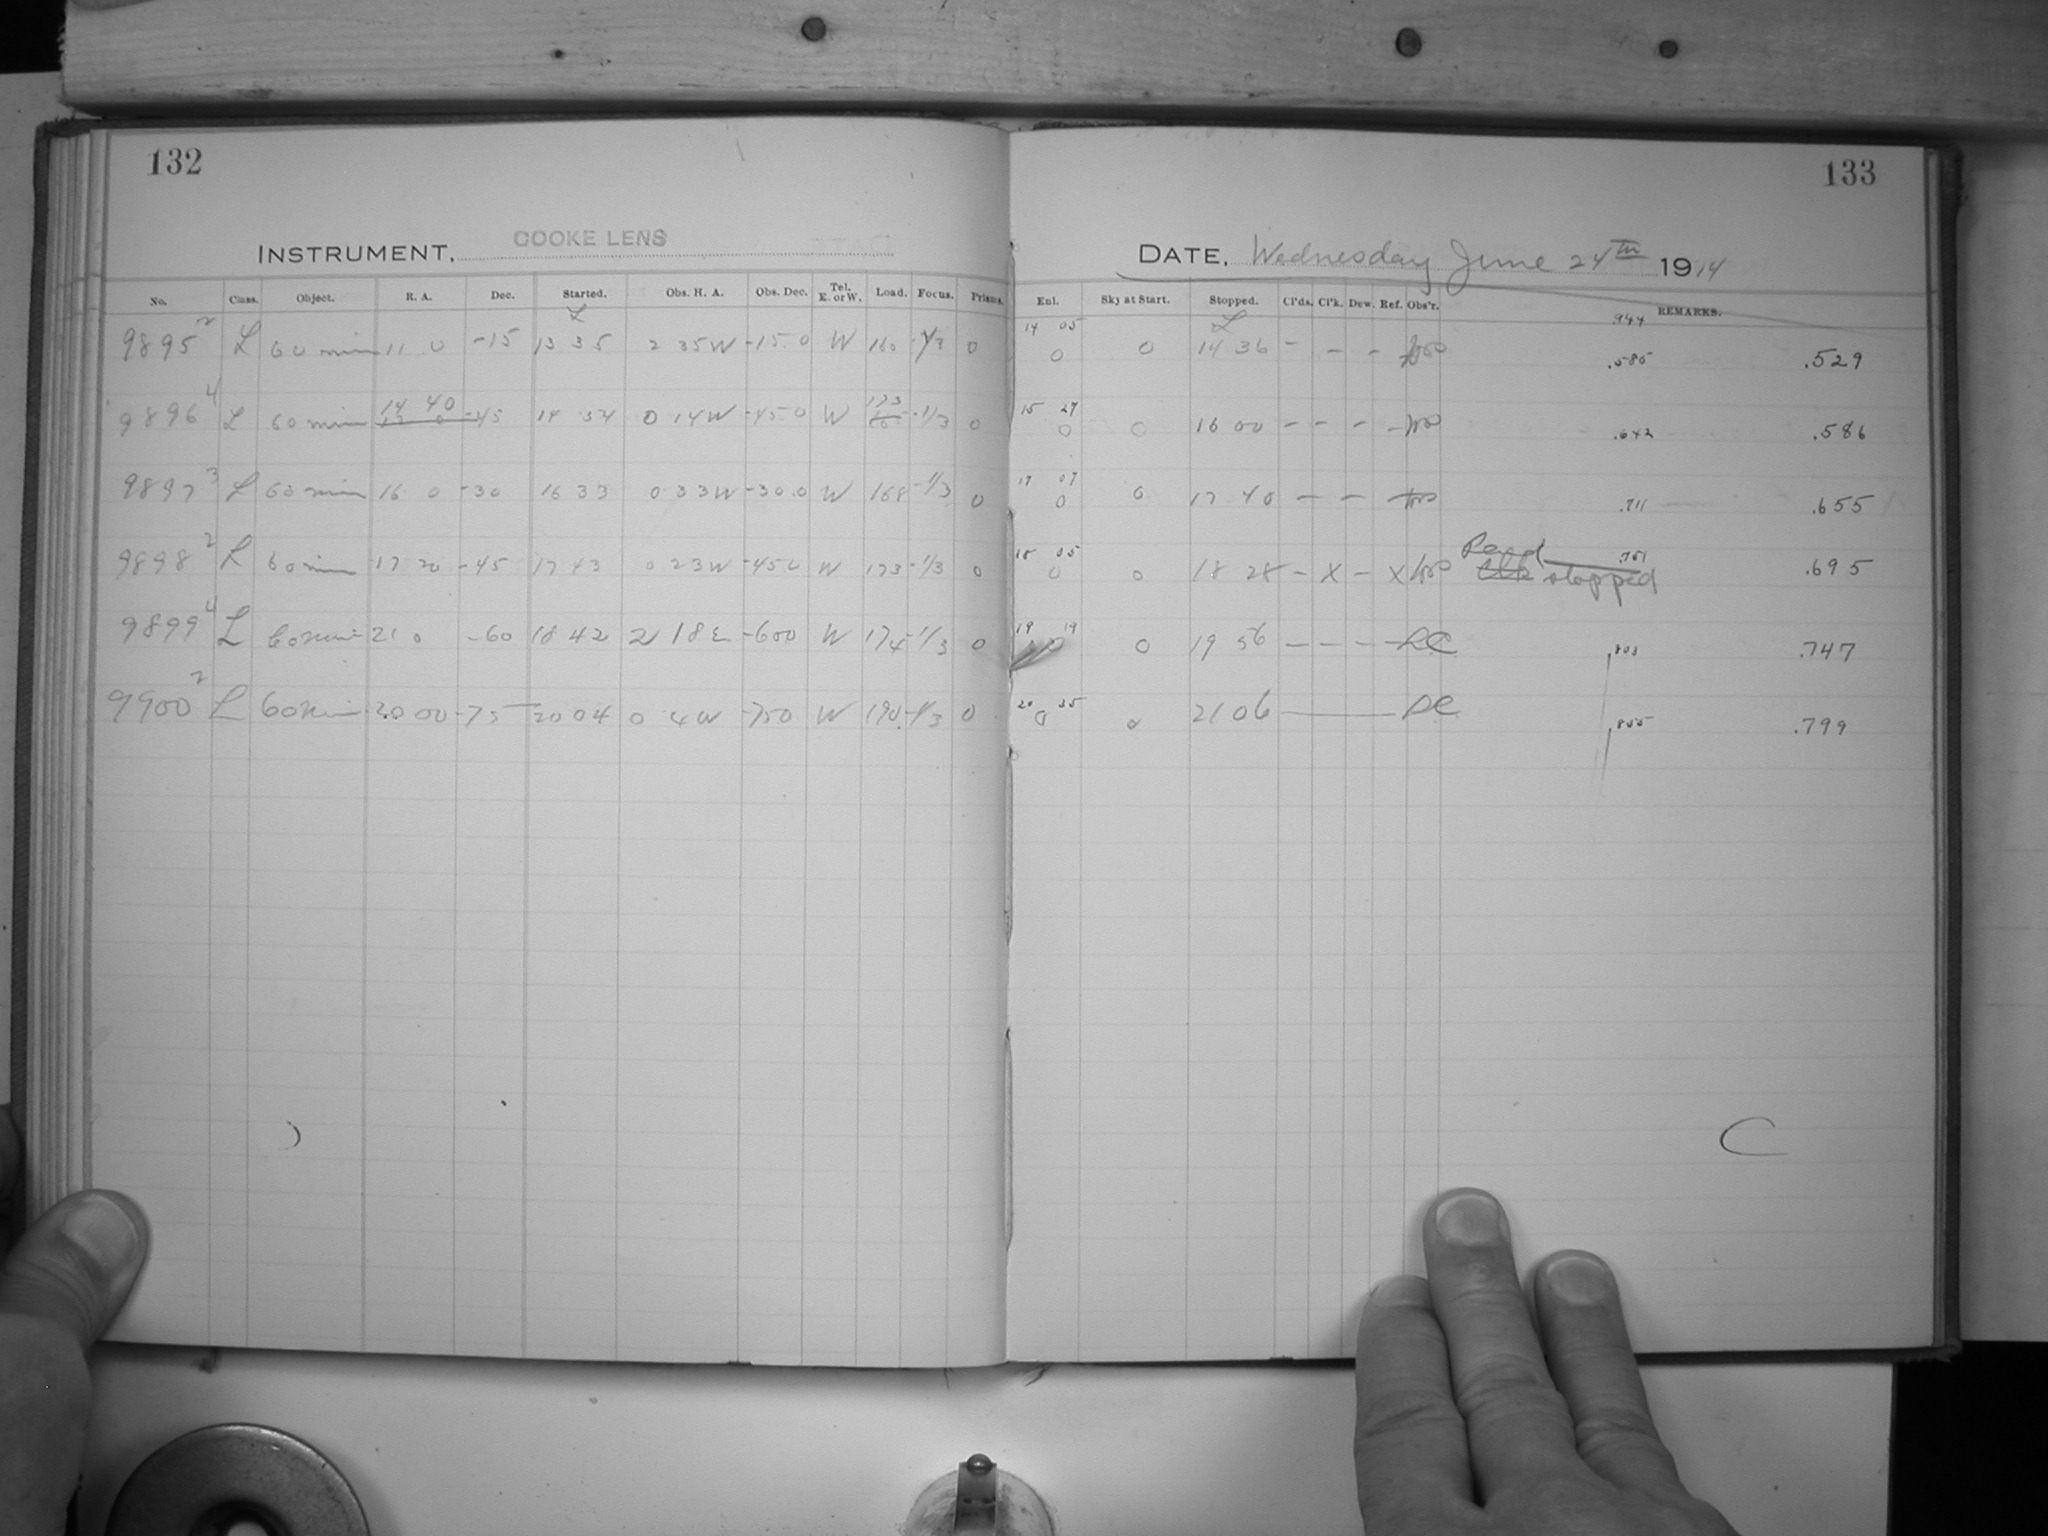 132
INSTRUMENT, COOKE LENS
No. Class. Object. R. A. Dec. Started. Obs. H. A. Obs. Dec. Tel. E. or W. Load. Focus. Prisms.
L
9895 2 L 60 min 11 0 -15 13 35 2 35 W -15.0 W 160 -1/3 0
9896 4 L 60 min 14 40 -45 14 54 0 14 W -45 0 W 173 -1/3 0
9897 3 L 60 min 16 0 -30 16 33 0 33 W -30.0 W 168 -1/3 0
9898 2 L 60 min 17 20 -45 17 43 0 23 W -45 0 W 173 -1/3 0
9899 4 L 60 min 21 0 -60 18 42 2 18 E -60 0 W 174 -1/3 0
9900 2 L 60 min 20 00 -75 20 04 0 4 W -75 0 W 190 -1/3 0
133
DATE, Wednesday June 24th 1914
Enl. Sky at Start. Stopped. Cl'ds. Cl'k. Dew. Ref. Obs'r. REMARKS.
14 05 L .944
0 0 14 36 - - - .585 .529
15 27
0 0 16 00 - - - - .642 .586
17 07
0 0 17 40 - - .711 .655
18 05 Pend .751
0 0 18 28 - X - X Clk stopped .695
19 19
0 0 19 56 - - - - LC .803 .747
20 35
0 0 21 06 LC .855 .799
C